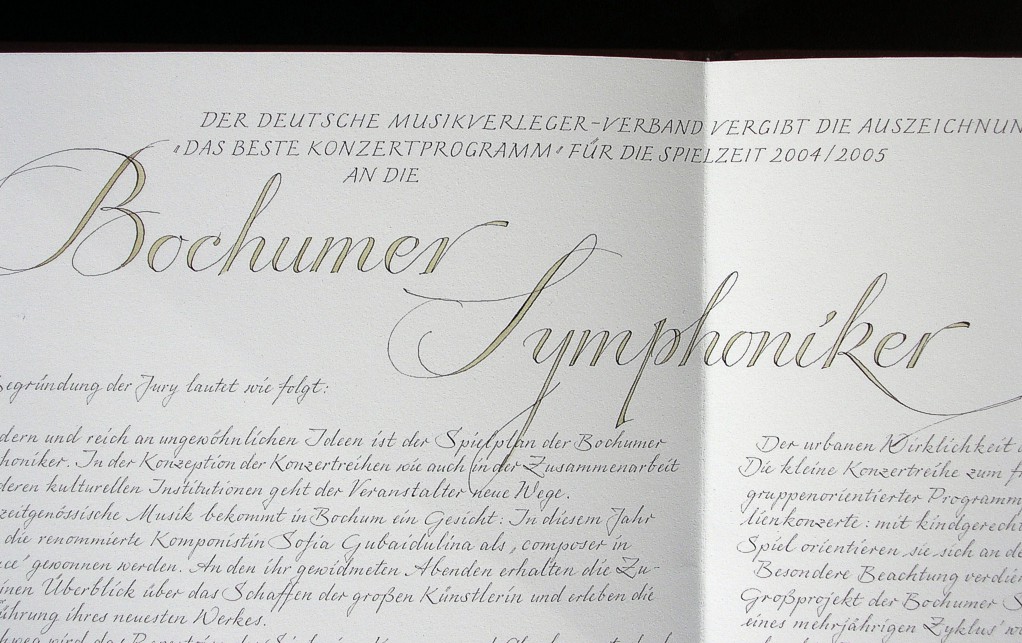 DER DEUTSCHE MUSIKVERLEGER-VERBAND VERGIBT DIE AUSZEICHNUN
„DAS BESTE KONZERTPROGRAMM“ FÜR DIE SPIELZEIT 2004/2005
AN DIE
Bochumer
Symphoniker
egründung der Jury lautet wie folgt:
dern und reich an ungewöhnlichen Ideen ist der Spielplan der Bochumer
honiker. In der Konzeption der Konzertreihen wie auch in der Zusammenarbeit
deren kulturellen Institutionen geht der Veranstalter neue Wege.
zeitgenössische Musik bekommt in Bochum ein Gesicht: In diesem Jahr
die renommierte Komponistin Sofia Gubaidulina als ‚composer in
ce‘ gewonnen werden. An den ihr gewidmeten Abenden erhalten die Zu-
inen Überblick über das Schaffen der großen Künstlerin und erleben die
ührung ihres neuesten Werkes.
Der urbanen Wirklichkeit
Die kleine Konzertreihe zum f
gruppenorientierter Programm
lienkonzerte: mit kindgerecht
Spiel orientieren sie sich an de
Besondere Beachtung verdie
Großprojekt der Bochumer S
eines mehrjährigen Zyklus' w